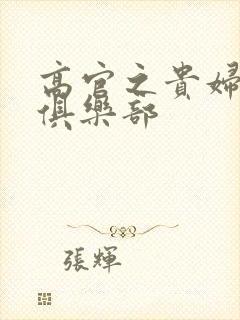 高官之貴婦
俱樂部
張輝